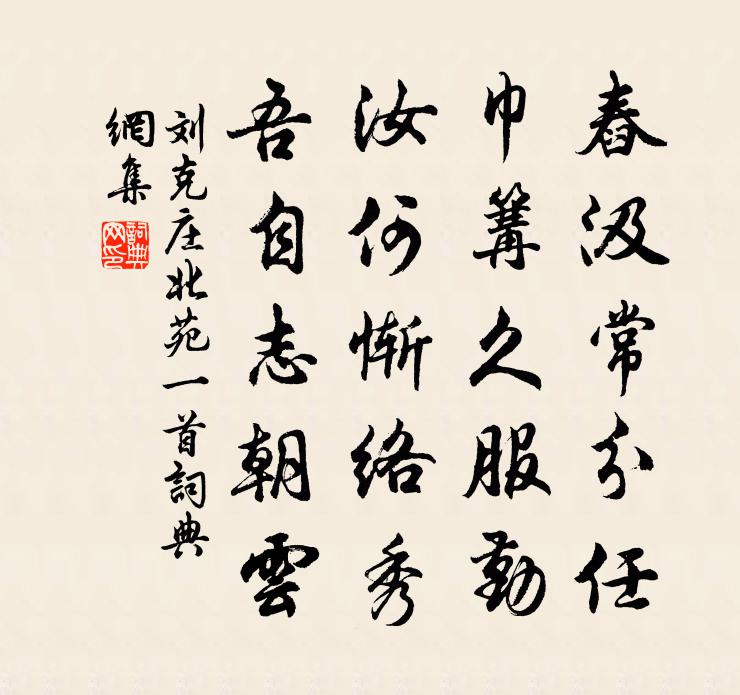 舂汲常分任
巾篝久服勤
汝何慚絡秀
吾自志朝雲
刘克庄北苑一首詞典
網集
詞典
网印